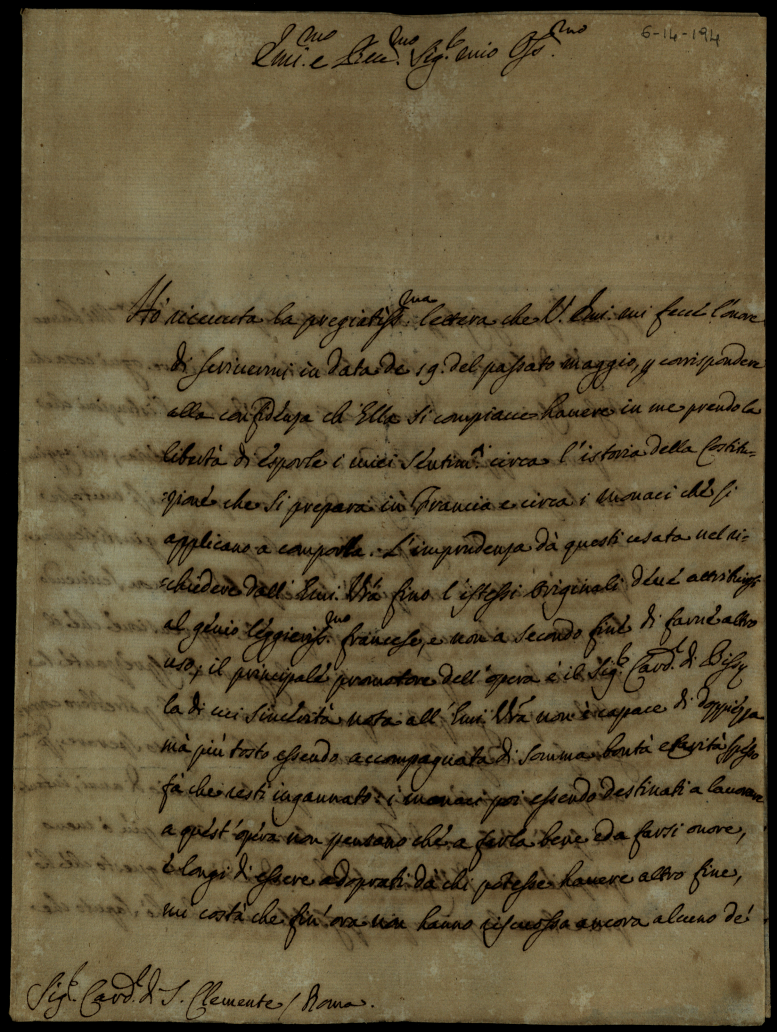 6-14-194
Emi.mo e Reu.mo Sig.r mio Oss.mo
Hó riceuuta la pregiatiss.ma lettera che V. Emi. mi fece l'onore
di scriuermi in data de 19. del passato maggio, p corrispondere
alla confidenza ch'Ella si compiace hauere in me prendo la
libertà di esporle i miei sentim.ti circa l'istoria della Costitu-
zione che si prepara in Francia e circa i monaci che si
applicano a comporla. L'imprudenza dà questi usata nel ri-
chiedere dall'Emi. Vrã fino l'istessi originali deue attribuirsi
al génio leggieriss.mo francese, e non a secondo fine di farne altro
uso, il principale promotore dell'opera é il Sig.r Card.l di Bissy
la di cui sincerità nota all'Emi. Vrã non é capace di doppiezza
mà più tosto essendo accompagnata di somma bontà e carità spesso
fà che resti ingannato: i monaci poi essendo destinati a lauorare
a quest'opéra non pensano che a farla bene e da farsi onore,
é longi di essere adoprati dà chi potesse hauere altro fine,
mi costà che fin'ora non hanno riscuosso ancora alcuno de'
Sig.r Card.l di S. Clemente / Roma.